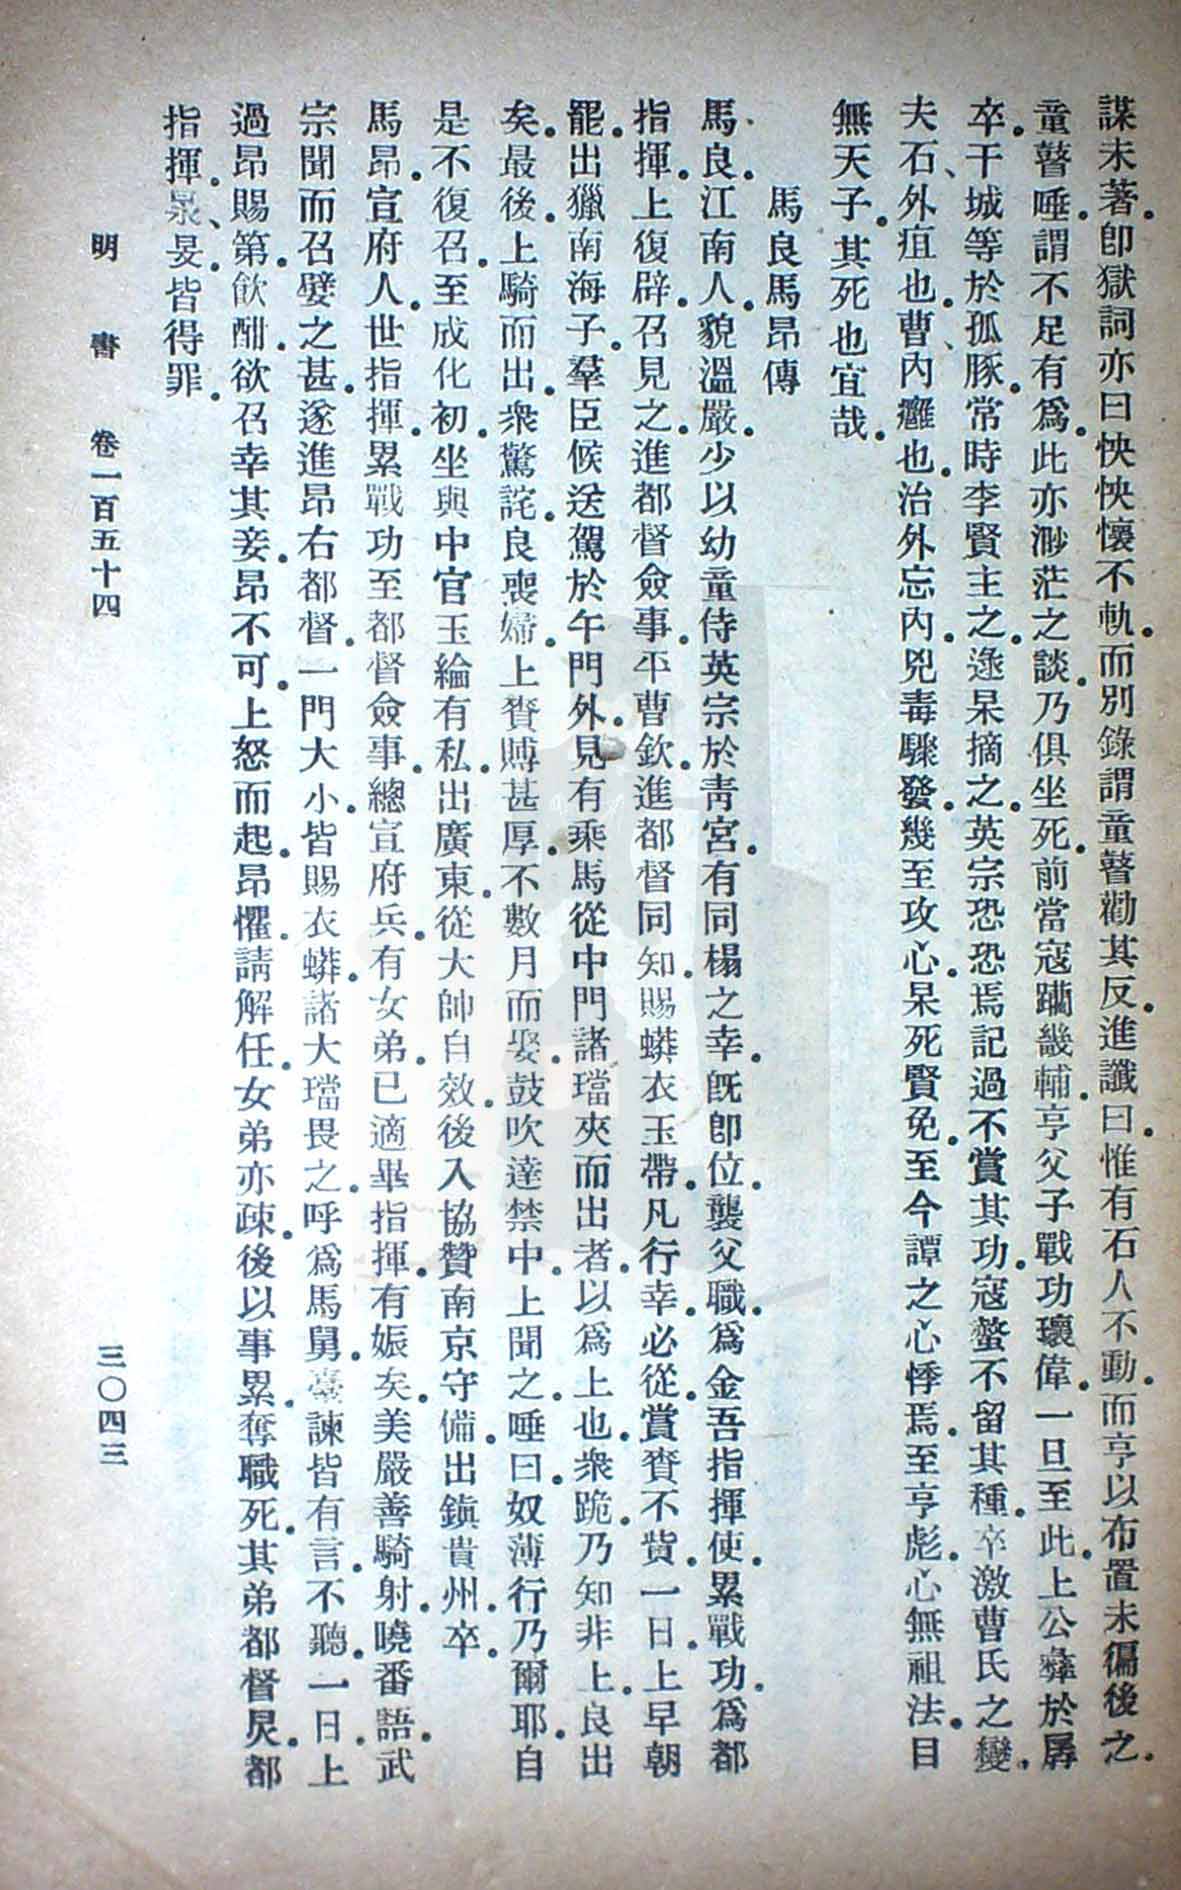 謀未著。卽獄詞亦曰怏怏懷不軌。而別錄謂童瞽勸其反。進讖曰。惟有石人不動。而亨以布置未徧後之。
童瞽唾。謂不足有爲。此亦渺茫之談。乃俱坐死。前當寇躪畿輔。亨父子戰功瓌偉。一旦至此。上公彝於孱
卒。干城等於孤豚。常時李賢主之。逯杲摘之。英宗恐恐焉記過不賞其功。寇螫不留其種。卒激曹氏之變。
夫石、外疽也。曹、內癰也。治外忘內。兇毒驟發。幾至攻心。杲死賢免。至今譚之心悸焉。至亨彪。心無祖法。目
無天子。其死也宜哉。
馬良馬昂傳
馬良。江南人。貌溫嚴。少以幼童侍英宗於靑宮。有同榻之幸。旣卽位。襲父職。爲金吾指揮使。累戰功。爲都
指揮。上復辟。召見之。進都督僉事。平曹欽。進都督同知。賜蟒衣玉帶。凡行幸。必從。賞賚不貲。一日。上早朝
罷。出獵南海子。羣臣候送駕於午門外。見有乘馬從中門。諸璫夾而出者。以爲上也。衆跪。乃知非上。良出
矣。最後。上騎而出。衆驚詫。良喪婦。上賚賻甚厚。不數月而娶。鼓吹達禁中。上聞之。唾曰。奴薄行乃爾耶。自
是不復召。至成化初。坐與中官玉綸有私。出廣東。從大帥自效。後入協贊南京守備。出鎮貴州。卒。
馬昂。宣府人。世指揮。累戰功至都督僉事。總宣府兵。有女弟。已適畢指揮。有娠矣。美嚴善騎射。曉番語。武
宗聞而召嬖之甚。遂進昂右都督。一門大小。皆賜衣蟒。諸大璫畏之。呼爲馬舅。臺諫皆有言。不聽。一日。上
過昂賜第。飮酣。欲召幸其妾。昂不可。上怒而起。昂懼。請解任。女弟亦疎。後以事累。奪職死。其弟都督炅。都
指揮。昶、炅。皆得罪。
明書 卷一百五十四 三〇四三